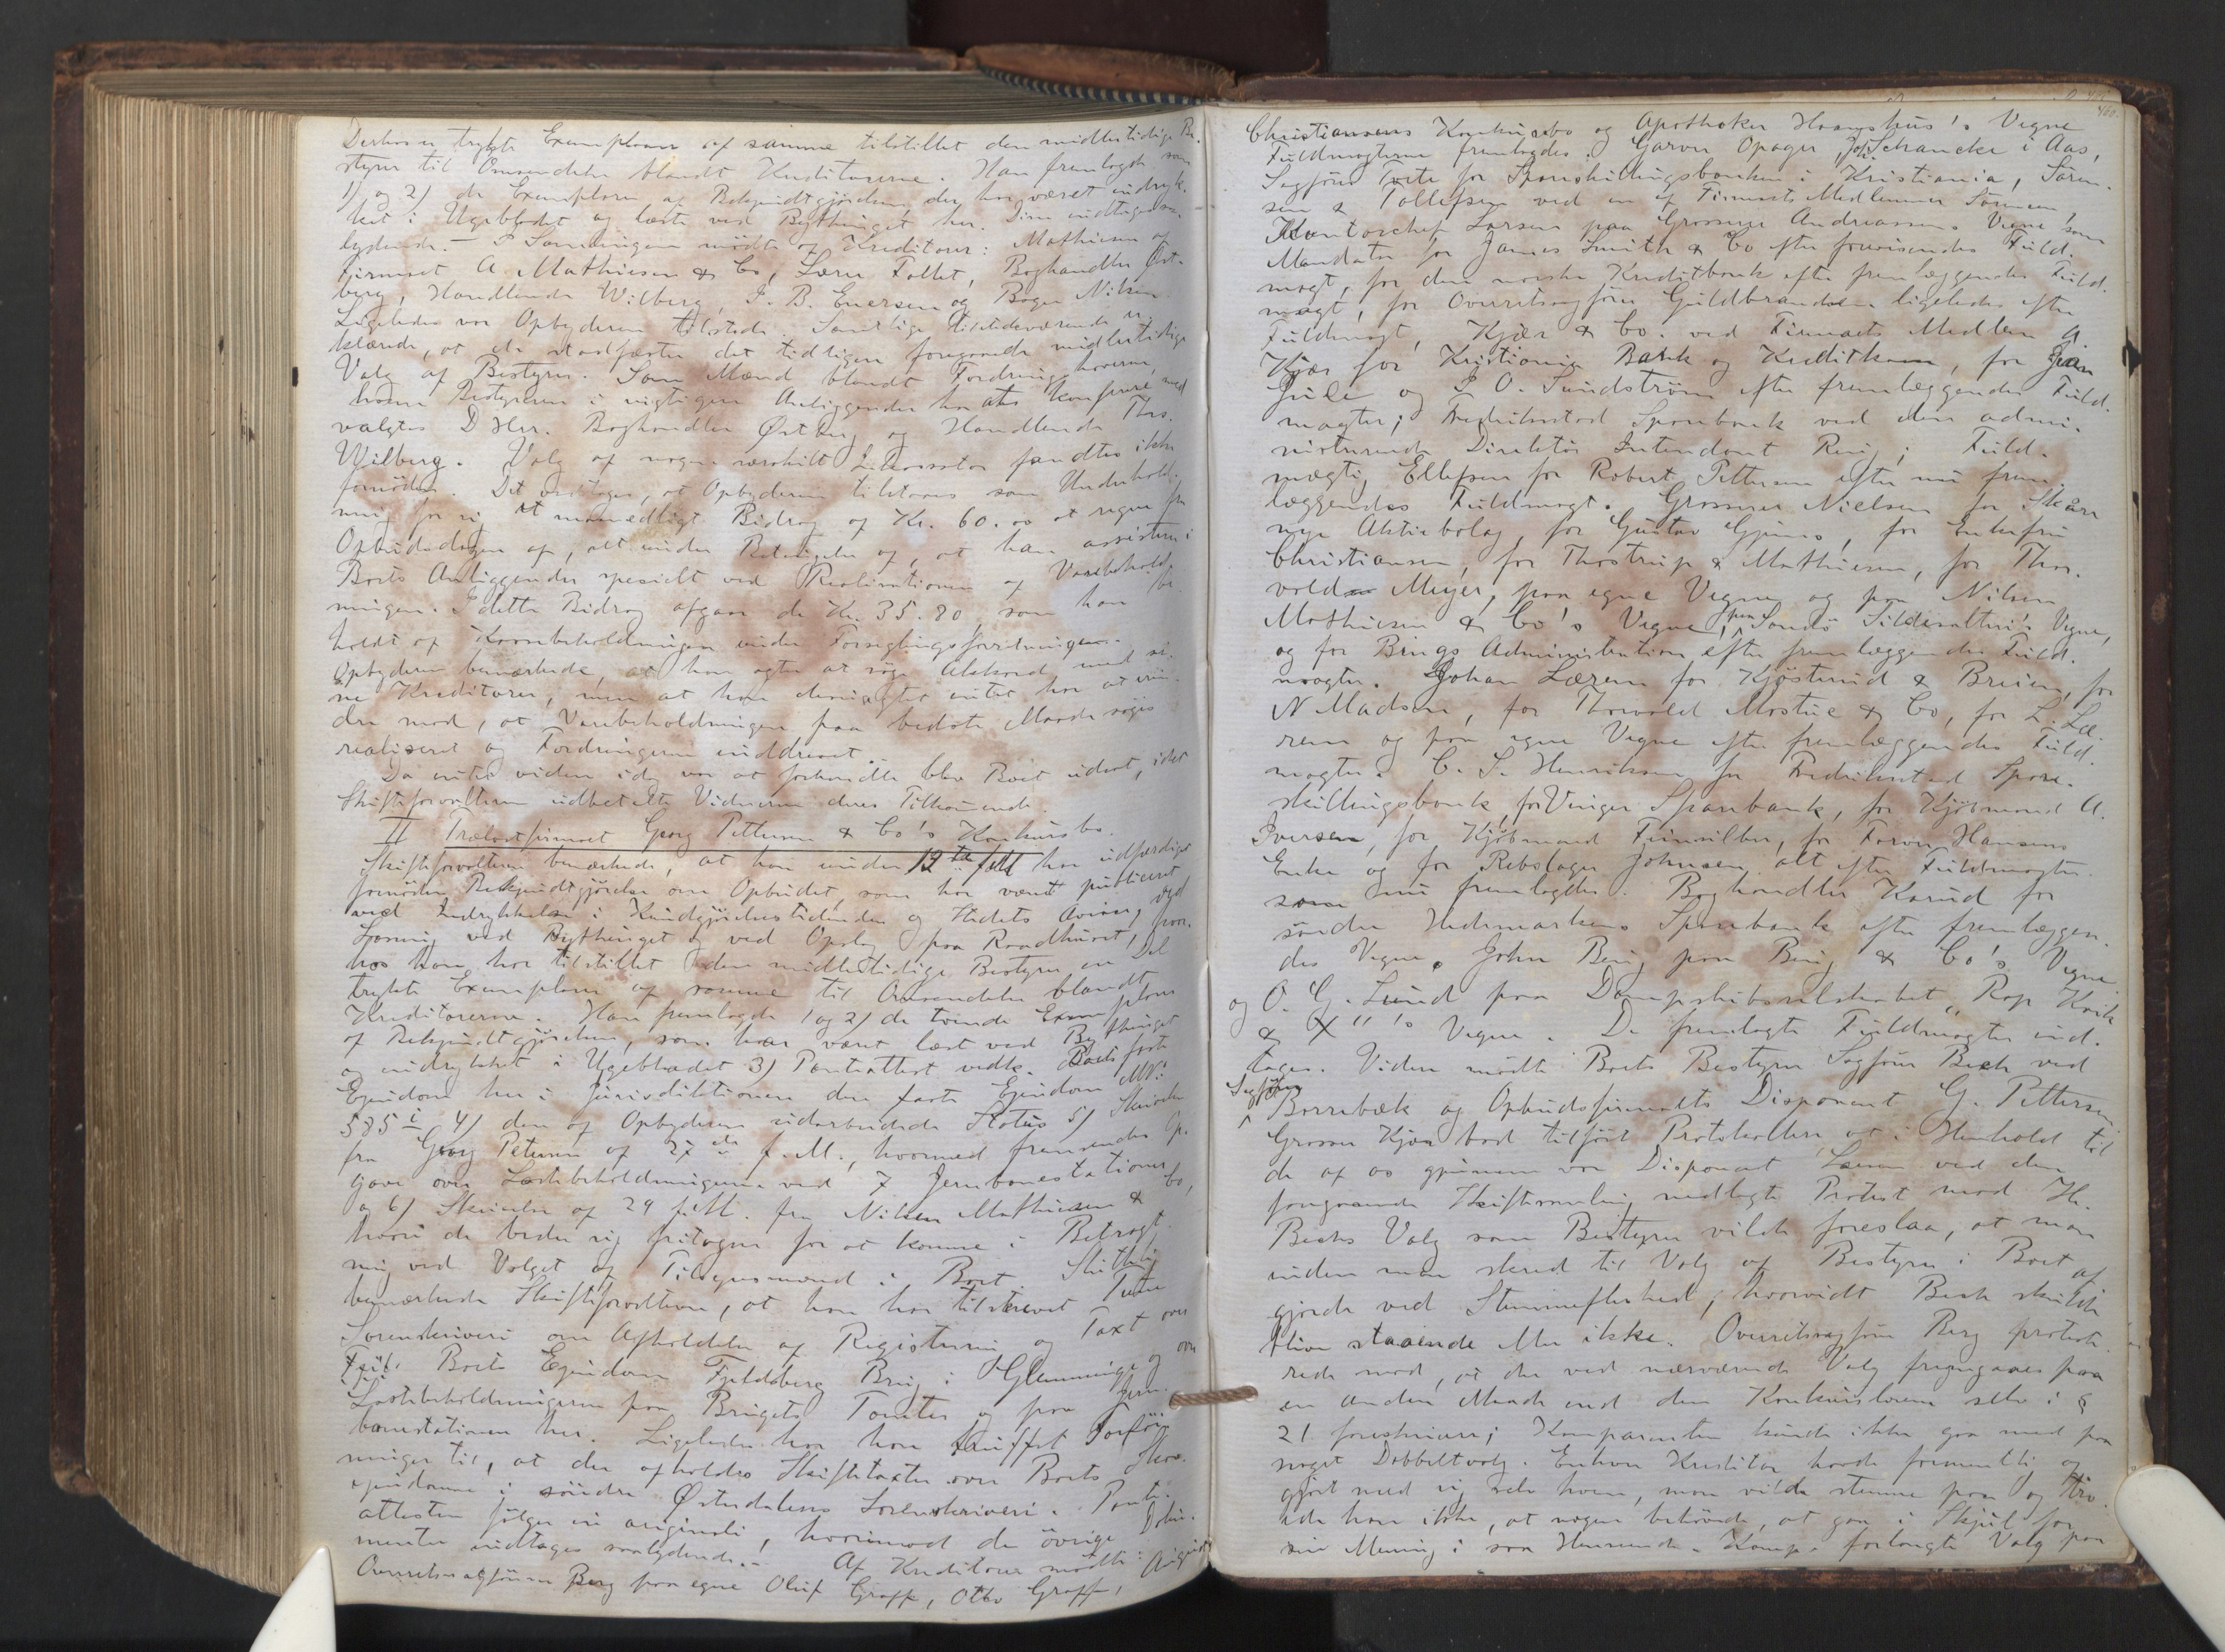 Derhos er trykte Exemplarer af samme tilstillet den midlertidige Be-
styrer til Omsendelse blandt Kreditorerne. Han fremlagde som
1) og 2) de Exemplarer af Bekjendtgjørelsen der har været indryk-
ket i Ugebladet og læste ved Bythinget her. Disse indtages saa-
lydende. – I Samlingen mødte af Kreditorer: Mathiesen af
Firmaet A. Mathiesen & Co, Lærer Follet, Boghandler Øst-
berg, Handlende Wilberg, I. B. Enersen og Bager Nilsen.
Ligeledes var Opbyderen tilstede. Samtlige tilstedeværende er-
klærede, at de stadfæster det tidligere foregaaede midlertidige
Valg af Bestyrer. Som Mænd blandt Fordringshaverne,
hvem Bestyreren i vigtigere Anliggender har at konferere med
valgtes D Hrr. Boghandler Østberg og Handlende Ths.
Wilberg. Valg af nogen særskilt Inkassator fandtes ikke
fornöden. Det vedtoges, at Opbyderen tilstaaes som Underhold-
ning for sig et maanedligt Bidrag af Kr. 60.00 at regne fra
Opbudsdagen af, alt under Betingelse af, at han assisterer i
Boets Anliggender specielt ved Realisationen af Varebehold-
ningen. I dette Bidrag afgaar de Kr. 35.80 som han be-
holdt af Kassebeholdningen under Forseglingsforretningen.
Opbyderen bemærkede, at han agter at söge Akkord med si-
ne Kreditorer, men at han desuagtet intet har at erin-
dre mod, at Varebeholdningen paa bedste Maade söges
realiseret og Fordringerne inddrevet.
Da intet videre idag var at forhandle blev Boet udsat, idet
Skifteforvalteren udbetalte Vidnerne deres Tilkommende.
II Trælastfirmaet Georg Pettersen & Co's Konkursbo.
Skifteforvalteren bemærkede, at han under 12te f M har udfærdiget
fornöden Bekjendtgjörelse om Opbudet, som har været publiceret
ved Indrykkelse i Kundgjörelsestidende og Stedets Aviser, ved
Læsning ved Bythinget og ved Opslag paa Raadhuset, hvor-
hos han har tilstillet den midlertidige Bestyrer en Del
trykte Exemplarer af samme til Omsendelse blandt
Kreditorerne. Han fremlagde 1 og 2) de tvende Exemplarer
af Bekjendtgjörelsen, som har været læst ved Bythinget
og indrykket i Ugebladet 3) Panteattest vedk. Boets faste
Eiendom her i Jurisdiktionen den faste Eiendom Mº:
585 i 4) den af Opbyderen udarbeidede Status 5) Skrivelse
fra Georg Petersen af 27de f. M., hvormed fremsendes Op-
gave over Lastebeholdningerne ved 7 Jernbanestationer
og 6) Skrivelse af 29 f. M. fra Nilsen Mathiesen & Co,
hvori de beder sig fritagne for at komme i Betragt-
ning ved Valget af Tilsynsmænd i Boet. Slutteligt
bemærkede Skifteforvalteren, at han har tilskrevet Tune
Sorenskriveri om Afholdelse af Registrering og Taxt over
Boets Eiendom Fjeldberg Brug i Glemminge og over
Lastebeholdningerne paa Brugets Tomter og paa Jern-
banestationen her. Ligeledes har han truffet Forföi-
ninger til, at der afholdes Skiftetaxter over Boets Skov-
eiendomme i söndre Østerdalens Sorenskriveri. Pante-
attesten fölger in originali, hvorimod de övrige Doku-
menter indtages saalydende. – Af Kreditorer mödte: August
Overretssagförer Berg paa egne Oluf Graff, Otto Graff,
460.
Christiansens Konkursbo og Apotheker Haanshus's Vegne
Fuldmagterne fremlagdes. Garver Opager, Joh. Schancke i Aas,
Sagförer Tvete for Sparskillingsbanken i Kristiania, Sören-
sen & Tollefsen ved en af Firmaets Medlemmer Sörensen,
Kontorchef Larsen paa Grosserer Andreassens Vegne som
Mandatar for James Smith & Co efter foreviisendes Fuld-
magt, for den norske Kreditbank efter fremlæggendes Fuld-
magt, for Overretssagförer Guldbrandsen ligeledes efter
Fuldmagt, Kjær & Co. ved Firmaets Medlem A.
Kjær for Kristiania Bank og Kreditkasse, for
Juel og I. O. Sundström efter fremlæggendes Fuld-
magter; Fredrikstad Sparebank ved den admi-
nistrerende Direktör Intendant Ring; Fuld-
mægtig Ellefsen for Robert Pettersen efter nu frem-
læggendes Fuldmagt. Grosserer Nielsen for Skåre
nye Aktiebolag, for Gustav Gjems, for Enkefru
Christiansen, for Thostrup & Mathiesen, for Thor-
vald Meyer, paa egne Vegne og paa Nilsen
Mathiesen & Co's Vegne, paa Sandö Sildesalteri's Vegne,
og for Brugs Administration efter fremlæggendes Fuld-
magter. Johan Læren for Kjöstrud & Breien, for
N Madsen, for Thorvald Mostue & Co, for L. Læ-
ren og paa egne Vegne efter fremlæggendes Fuld-
magter. C. S. Henriksen for Fredrikstad Spare-
skillingsbank, for Vinger Sparebank, for Kjöbmand A.
Iversen, for Kjöbmand Finnsilber, for Farver Hansens
Enke og for Rebslager Johnsen alt efter Fuldmagter
som nu fremlagdes. Boghandler Karud for
söndre Hedemarkens Sparebank efter fremlæggen-
des Vegne. John Berg paa Berg & Co's Vegne
og O. G. Lund paa Dampskibsselskabet „Rap Kvik
& X"'s Vegne. De fremlagte Fuldmagter ind-
tages. Videre mödte Boets Bestyrer Sagförer Bech ved
Sagförer
Borrebæk og Opbudsfirmaets Disponent G. Pettersen
Grosserer Kjær bad tilfört Protokollen at i Henhold til
de af os gjennem vor Disponent Larsen ved den
foregaaende Skiftesamling nedlagte Protest mod Hr.
Bechs Valg som Bestyrer vilde foreslaa, at man
inden man skred til Valg af Bestyrer i Boet af-
gjorde ved Stemmeflerhed, hvorvidt Bech skulde
blive staaende eller ikke. Overretssagförer Berg protest-
rede mod, at der ved nærværende Valg fremgaaes paa
en anden Maade end den Konkursloven selv i §
21 foreskriver; Komparenten kunde ikke gaa med paa
noget Dobbeltvalg. Enhver Kreditor havde formentlig op-
gjort med sig selv hvem, man vilde stemme paa og tro-
ede han ikke, at nogen behövede, at gaa i Skjul for
sin Mening i saa Henseende. Komp. forlangte Valg paa